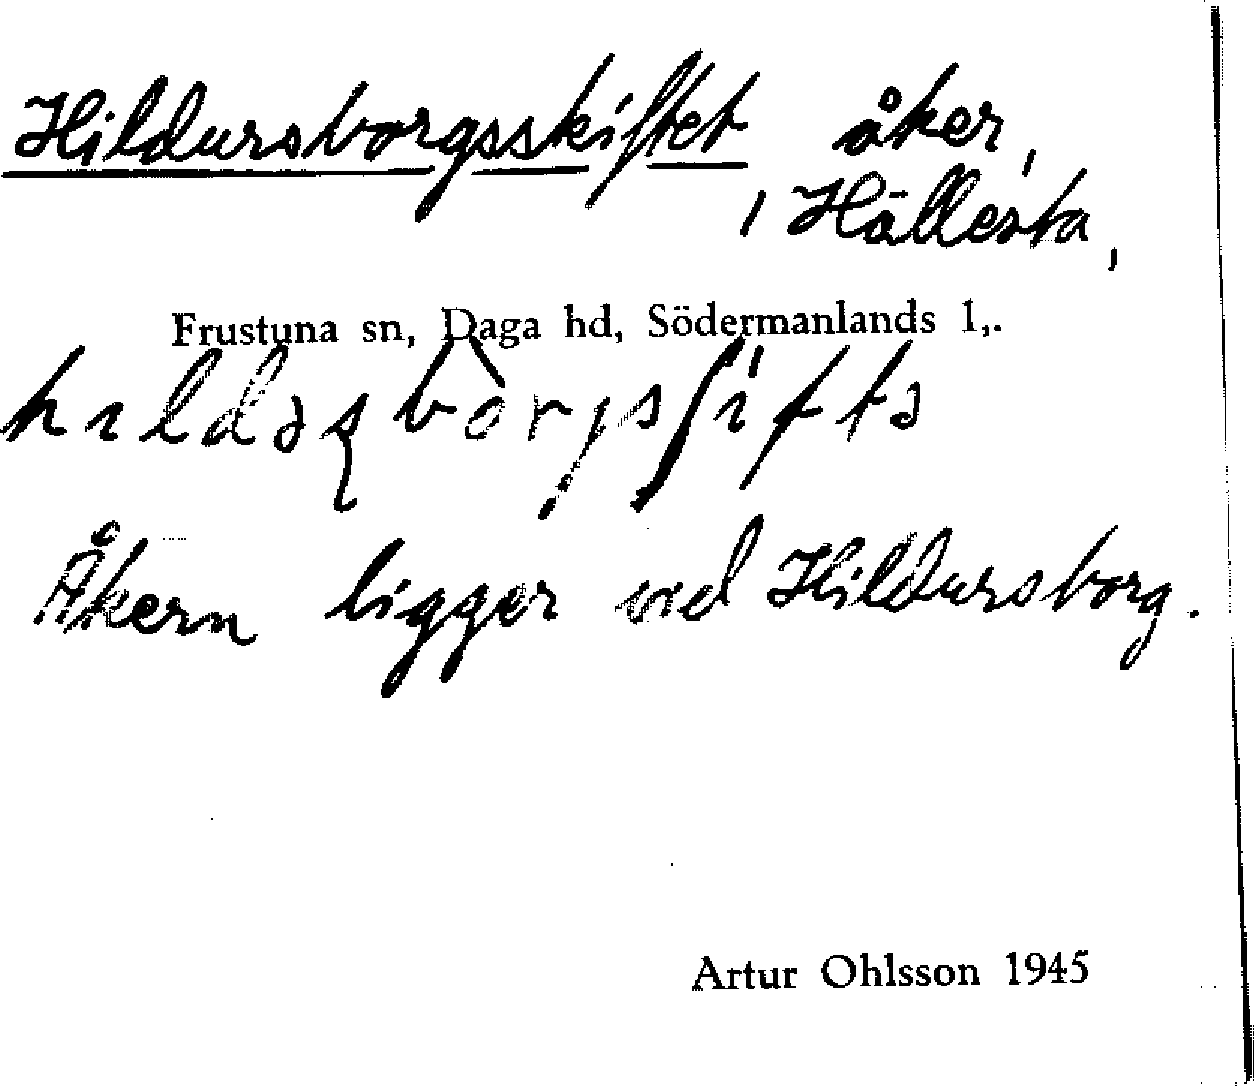 Hildursborgsskiftet åker,
, Hällesta,
Frustuna sn, Daga hd, Södermanlands l,.
Åkern ligger vid Hildursborg.
Artur Ohlsson 1945